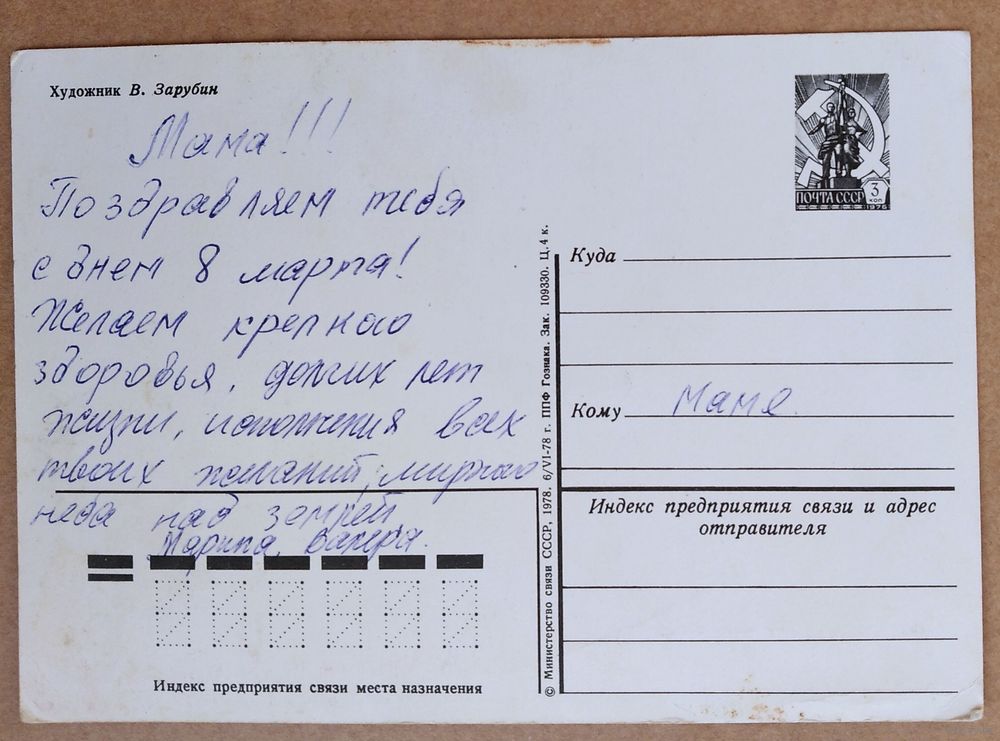 Художник В. Зарубин
Мама!!!
Поздравляем тебя
с днем 8 марта!
Желаем крепкого
здоровья, долгих лет
жизни, исполнения всех
твоих желаний, мирного
неба над землей
Марина, Валера.
Индекс предприятия связи места назначения
© Министерство связи СССР, 1978. 6/VI-78 г. ППФ Гознака. Зак. 109330. Ц. 4 к.
ПОЧТА СССР
3
КОП
1976
Куда
Кому Маме
Индекс предприятия связи и адрес
отправителя